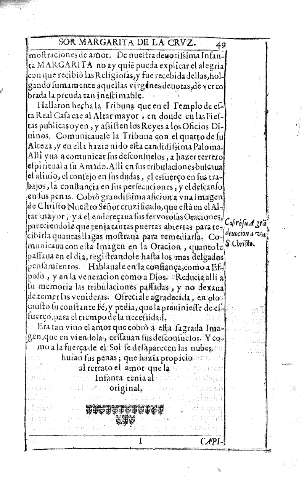 SOR MARGARITA DE LA CRVZ. 49
mostraciones de amor. De nuestra deuotissima Infan-
ta MARGARITA no ay quiẽ pueda explicar el alegria
con que recibiò las Religiosas, y fue recibida dellas, hol-
gando sumamente aquellas virgines deuotas, de ver co
brada la prenda tan inestimable.
Hallaron hecha la Tribuna que en el Templo de es-
ta Real Casa cae al Altar mayor, en donde en las fies-
tas publicas oyen, y assisten los Reyes a los Oficios Di-
uinos. Comunicauase la Tribuna con el quarto de su
Alteza, y en ella hazia nido esta candidissima Paloma.
Alli yua a comunicar sus desconsuelos, a hazer terrero
espiritual a su Amado. Alli en sus tribulaciones buscaua
el aliuio, el consejo en sus dudas, el esfuerço en sus tra-
bajos, la constancia en sus persecuciones, y el descanso
en sus penas. Cobrò grandissima aficion a vna imagen
de Christo Nuestro Señor crucificado, que està en el Al-
tar mayor, y a el endereçaua sus feruorosas Oraciones,
pareciendole que tenia tantas puertas abiertas para re-
cibirla quantas llagas mostraua para remediarla. Co-
municaua con esta Imagen en la Oracion, quanto le
passaua en el dia, registrandole hasta los mas delgados
pensamientos. Hablauale en la confiança, como a Es-
poso, y en la veneracion como a Dios. Reducia alli a
su memoria las tribulaciones passadas, y no dexaua
de temer las venideras. Ofreciale agradecida, en olo-
causto su constante Fè, y pedia, que la preuiniesse de es-
fuerço, para el tiempo de la necessidad.
Era tan viuo el amor que cobrò a esta sagrada Ima-
gen, que en viendola, cessauan sus desconsuelos. Y co-
mo a la fuerça de el Sol se desaparecen las nubes,
huian sus penas; que hazia propicio
al retrato el amor que la
Infanta tenia al
original.
S. Christo.
I CAPI-